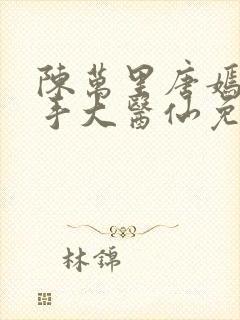 陳萬里唐嫣
手大醫仙免
林錦